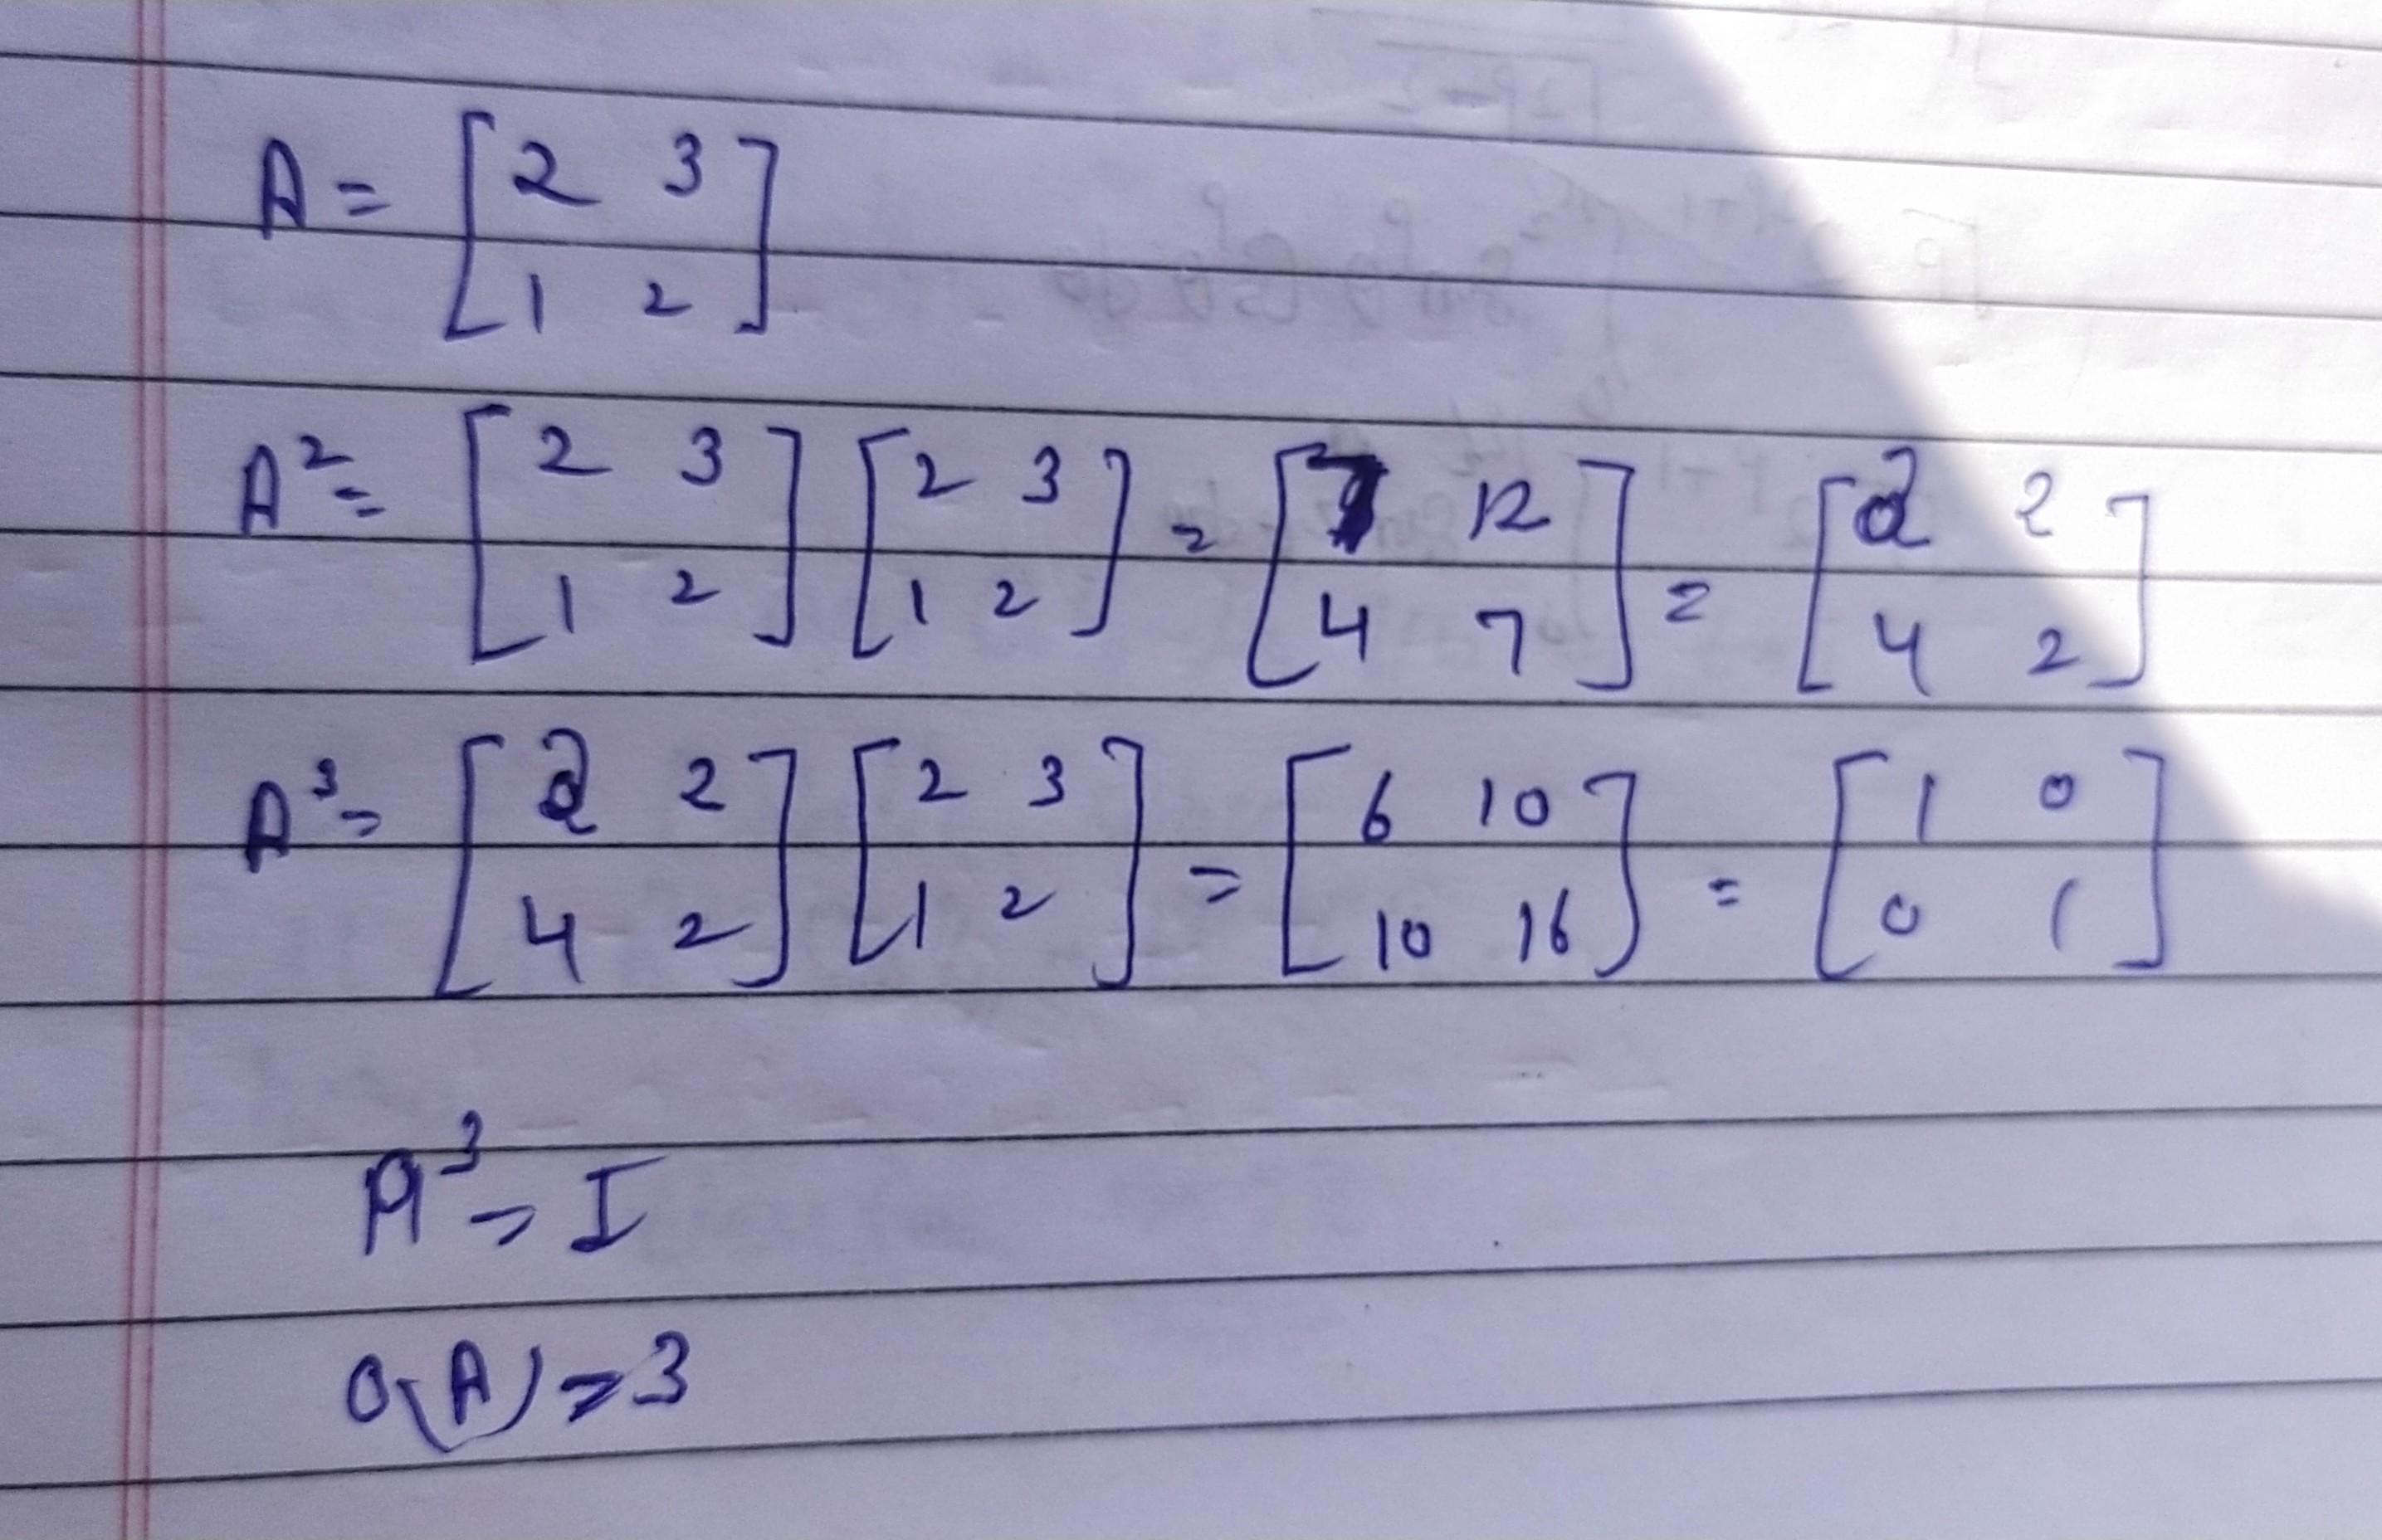 A = [2 3
1 2]
A² = [2 3
1 2] [2 3
1 2] = [7 12
4 7] = [2 2
4 2]
A³ = [2 2
4 2] [2 3
1 2] = [6 10
10 16] = [1 0
0 1]
A³ = I
O(A) = 3